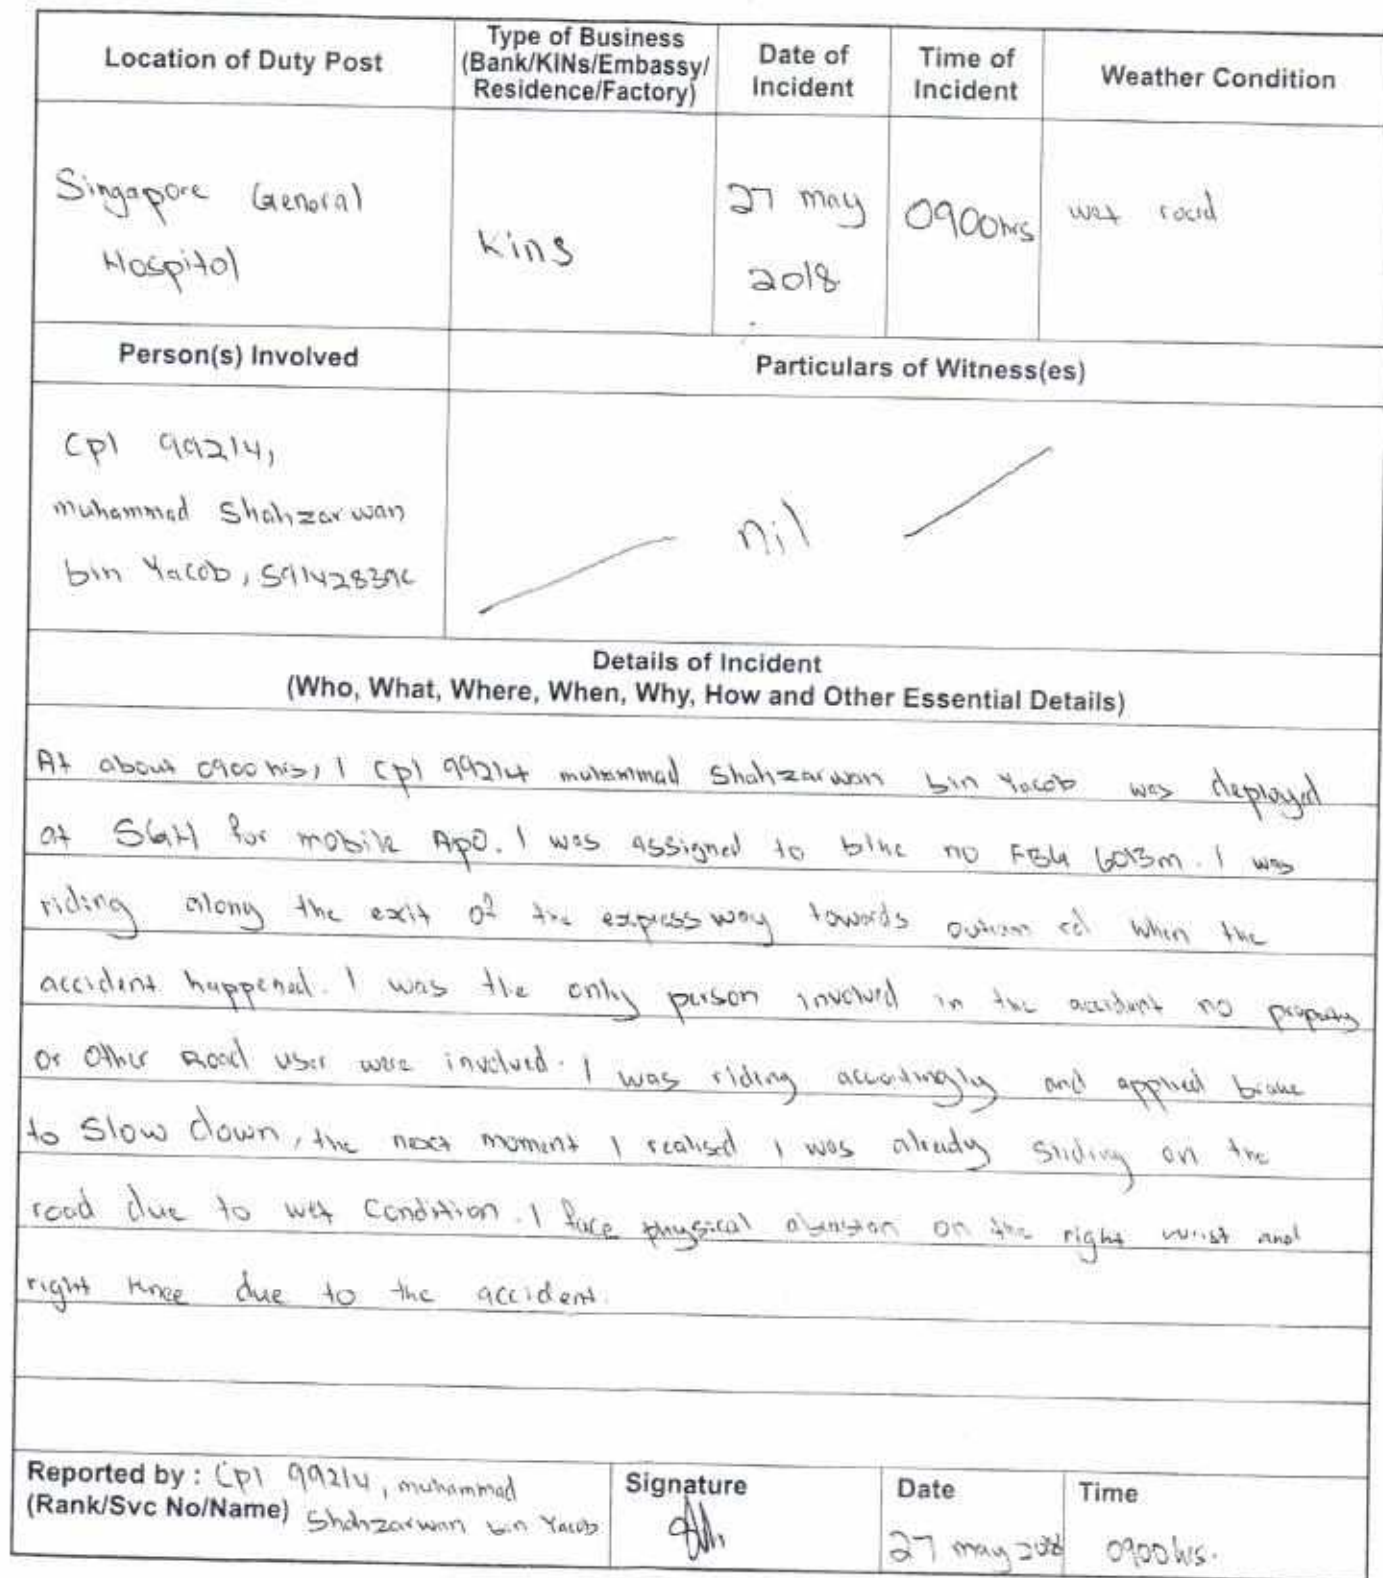 Location of Duty Post
Type of Business
(Bank/KINs/Embassy/
Residence/Factory)
Date of
Incident
Time of
Incident
Weather Condition
Singapore General
Hospital
Kins
27 may
2018
0900hrs
wet road
Person(s) Involved
Particulars of Witness(es)
Cpl 99214,
muhammad Shahzarwan
bin Yacob,
nil
Details of Incident
(Who, What, Where, When, Why, How and Other Essential Details)
At about 0900 hrs, I Cpl 99214 muhammad Shahzarwan bin Yacob was deployed
at SGH for mobile Apo. I was assigned to bike no 6013m. I was
riding along the exit of the expressway towards outram rd when the
accident happened. I was the only person involved in the accident no property
or other Road user were involved. I was riding accordingly and applied brake
to slow down, the next moment I realised I was already sliding on the
road due to wet Condition. I face physical abrasion on the right wrist and
right knee due to the accident.
Reported by : Cpl 99214, muhammad
(Rank/Svc No/Name) Shahzarwan bin Yacob
Signature
Date
27 may 2018
Time
0900hrs.